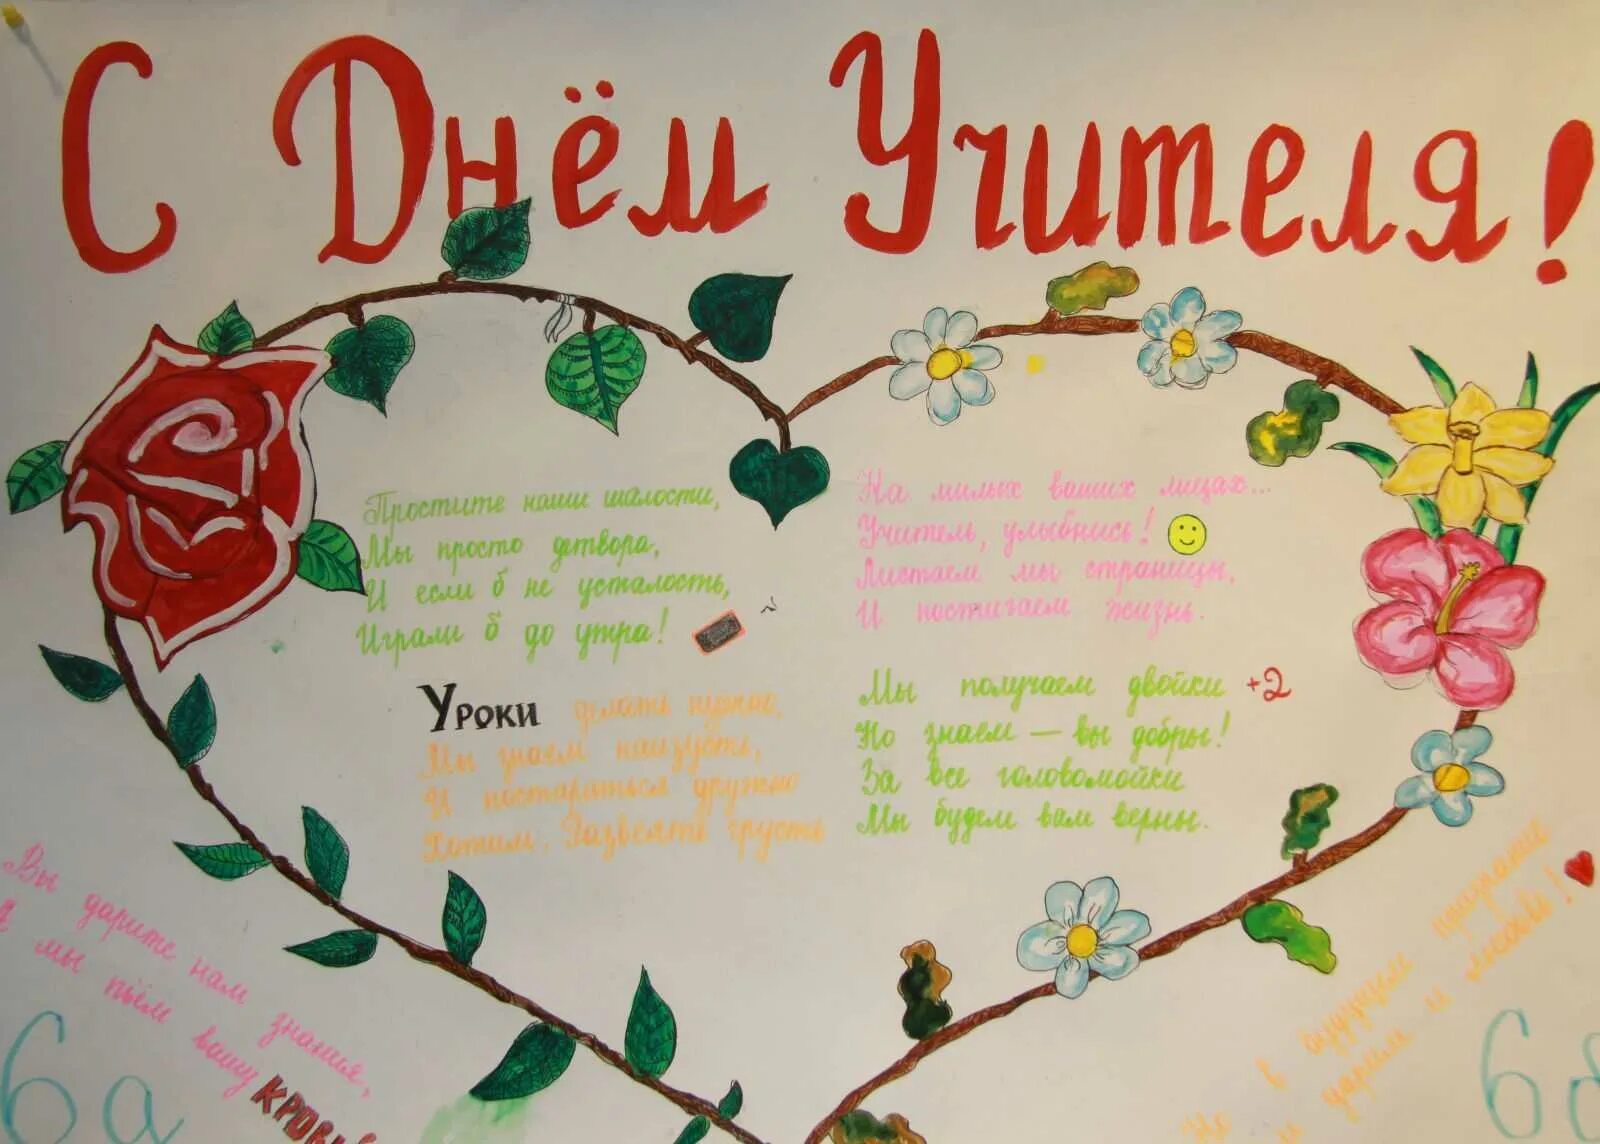 С Днём Учителя!
Простите наши шалости,
Мы просто детвора,
И если б не усталость,
Играли б до утра!
Уроки делать нужно,
Мы знаем наизусть,
И постараться дружно
Хотим, Развеять грусть
На милых ваших лицах...
Учитель, улыбнись!
Листаем мы страницы,
И постигаем жизнь.
Мы получаем двойки +2
Но знаем — вы добры!
За все головомойки
Мы будем вам верны.
Вы дарите нам знания,
А мы пьём вашу КРОВЬ
Но в будущем
дарим и любовь!
6а
6б